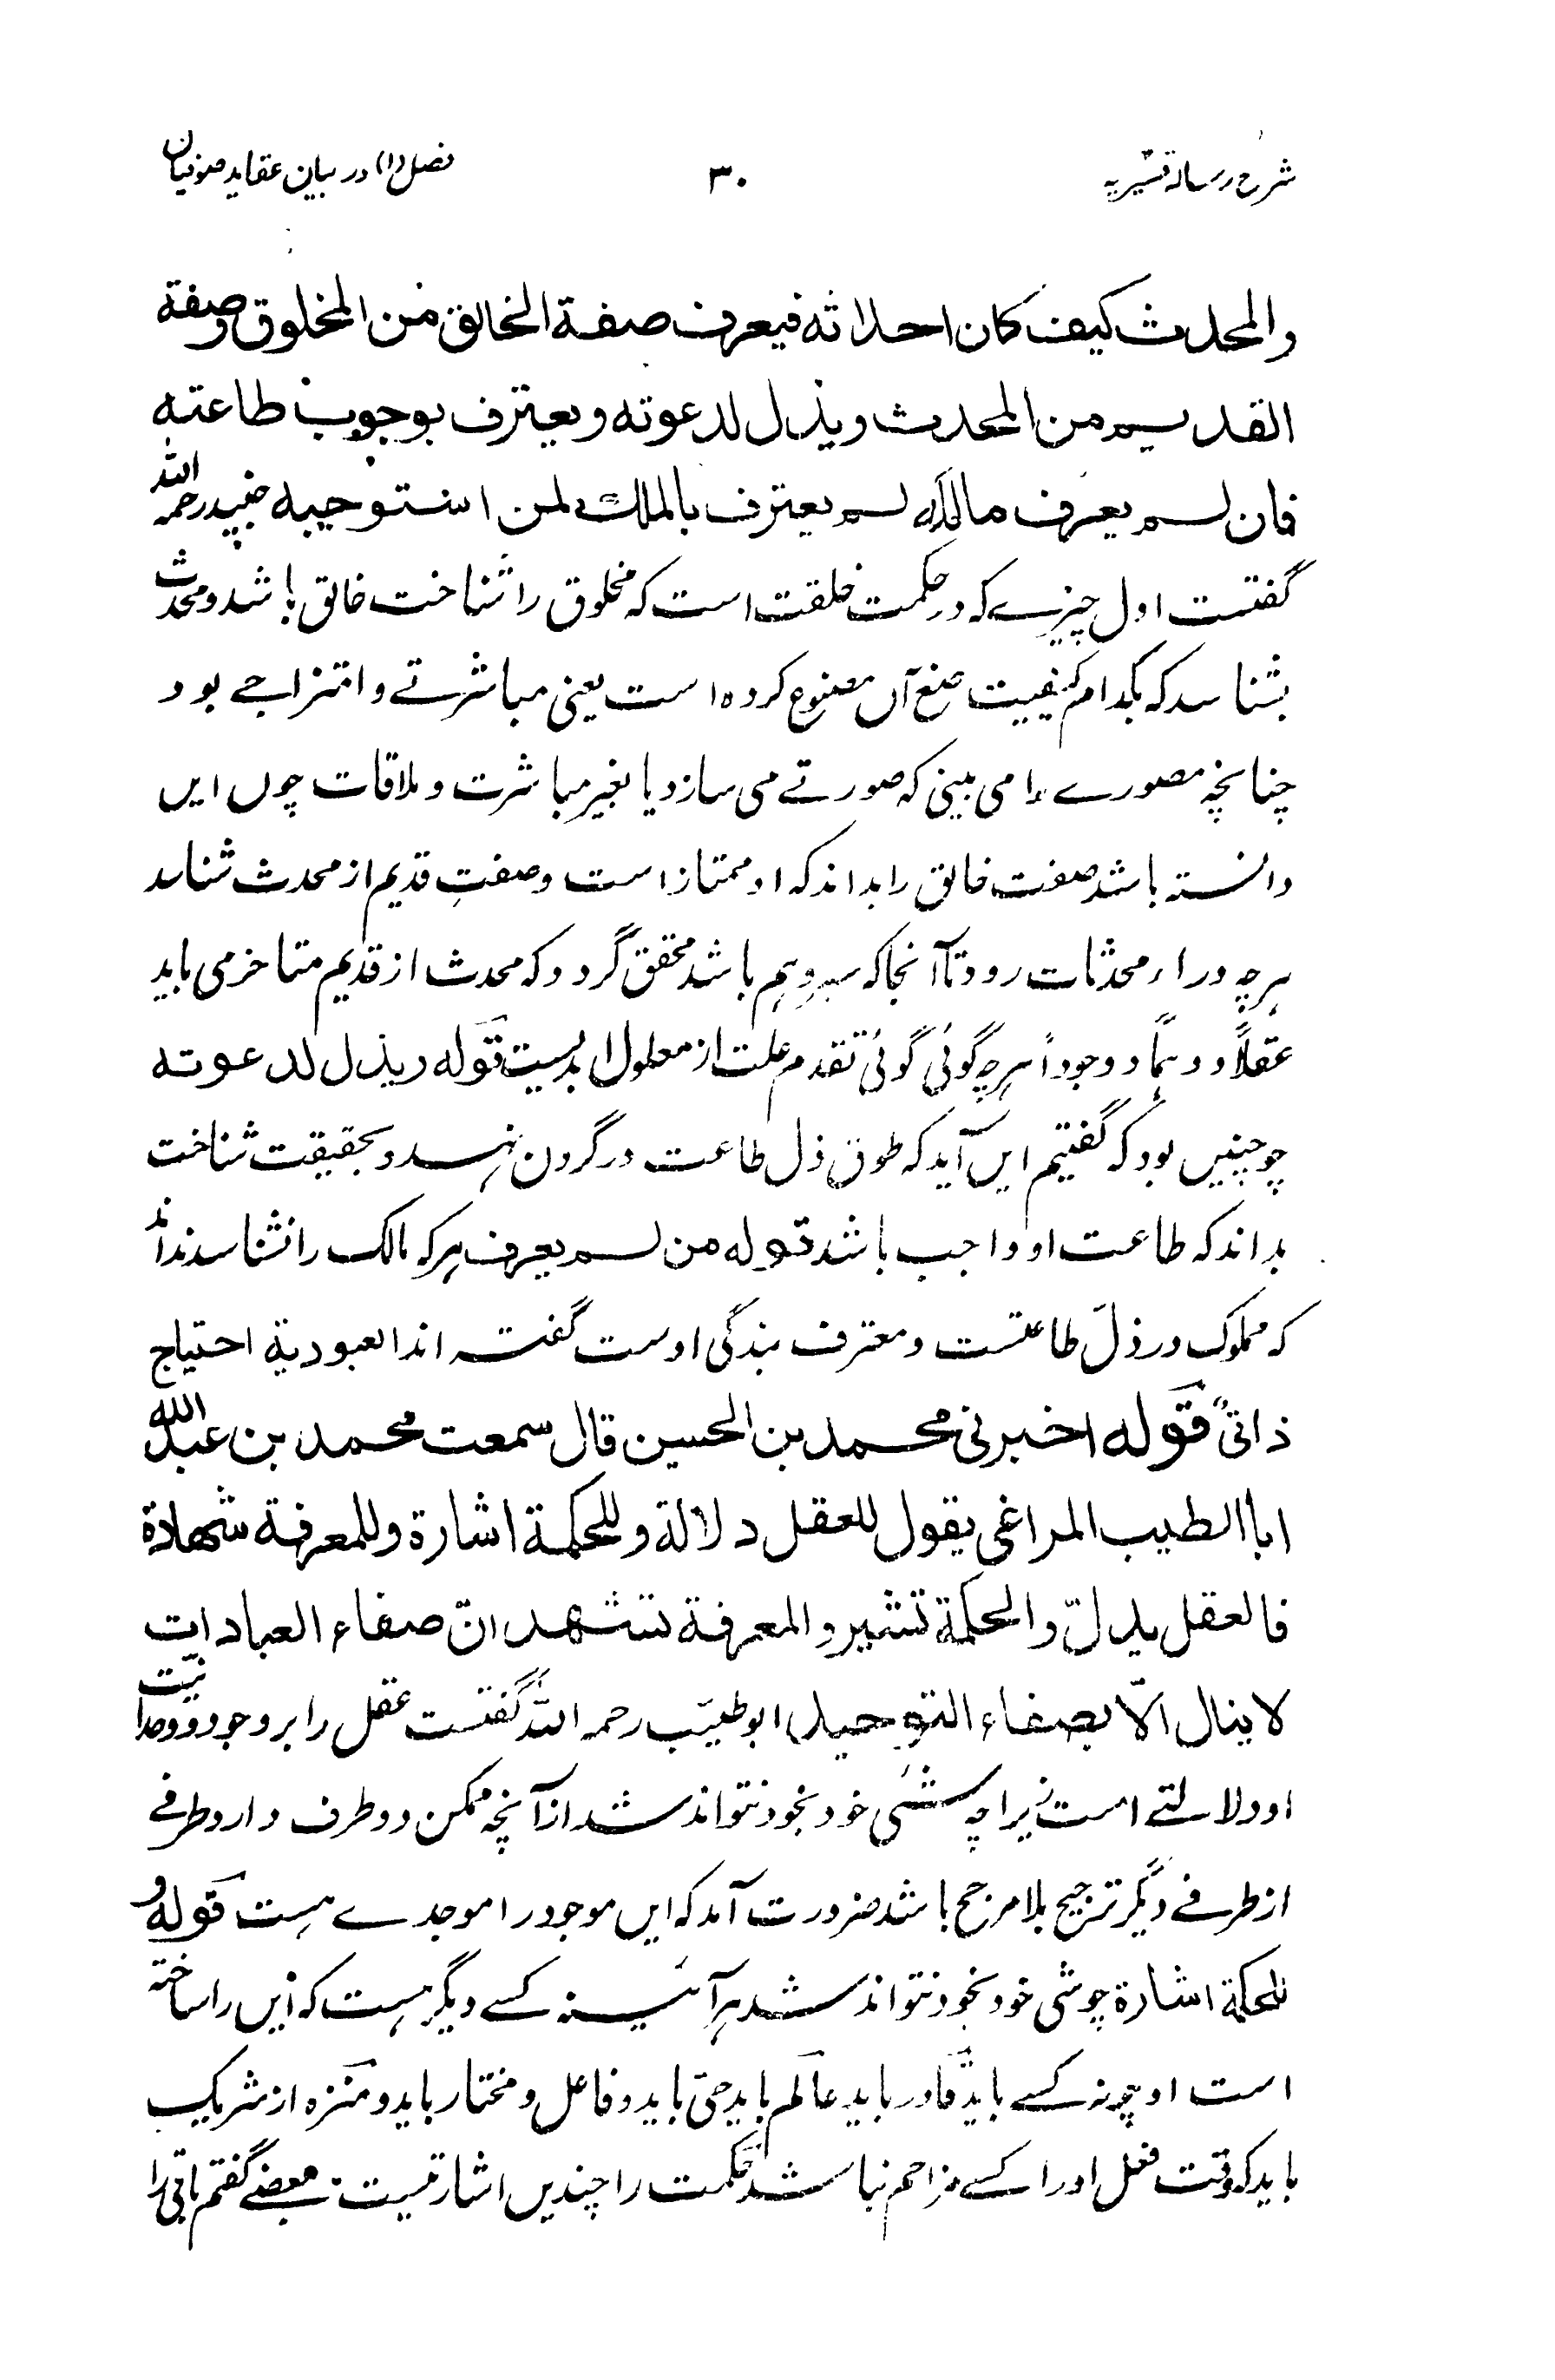 شرح رسالۂ قشیریہ
۳۰
فصل (۱) در بیان عقاید صوفیان
والمحدث کیف کان احداثه فیعرف صفة الخالق من المخلوق وصفة
القدیم من المحدث ویذل لدعوته ویعترف بوجوب طاعته
فان لم یعرف مالکه لم یعترف بالملک لمن استوجبه جنید رحمه الله
گفتست اول چیزے که در حکمت خلقت است که مخلوق را شناخت خالق باشد و محدث
بشناسد که بکدام کیفیت صنع آں مصنوع کرده است یعنی مباشرتے و امتزاجے بود
چنانچه مصورے را می بینی که صورتے می سازد یا بغیر مباشرت و ملاقات چوں ایں
دانسته باشد صفت خالق را بداند که او ممتاز است و صفتِ قدیم از محدث شناسد
هرچه وراء محدثات رود تا آنجا که سیر وهم باشد محقق گردد که محدث از قدیم متاخر می باید
عقلاً و وهمًا و وجوداً هرچه گوئی گوئی تقدم علت از معلول ابدیست قوله ویذل لدعوته
چو چنیں بود که گفتیم ایں آید که طوق ذل طاعت در گردن نهد و بحقیقت شناخت
بداند که طاعت او واجب باشد قوله من لم یعرف هرکه مالک را نشناسد نداند
که مملوک در ذلّ طاعتست و معترف بندگی اوست گفته اند العبودیة احتیاج
ذاتیٌ قوله اخبرنی محمد بن الحسین قال سمعت محمد بن عبدالله
ابا الطیب المراغی یقول للعقل دلالة وللحکمة اشارة وللمعرفة شهادة
فالعقل یدلّ والحکمة تشیر والمعرفة تشهد انّ صفاء العبادات
لاینال الّا بصفاء التوحید ابو طیّب رحمه اللّه گفتست عقل را بر وجود و وحدانیّت
او دلالتے است زیراچه شئی خود بخود نتواند شد ازآنچه ممکن دو طرف دارد طرفے
از طرفے دیگر ترجیح بلا مرجح باشد ضرورت آمد که ایں موجود را موجدے هست قوله و
للحکمة اشارة چو شی خود بخود نتواند شد هرآئینه کسے دیگر هست که ایں را ساخته
است او چونه کسے باید قادر باید عالم باید حیّ باید و فاعل و مختار باید و منزه از شریک
باید که وقت فعل اورا کسے مزاحم نباشد حکمت را چندیں اشارتیست بعضے گفتم باقی را